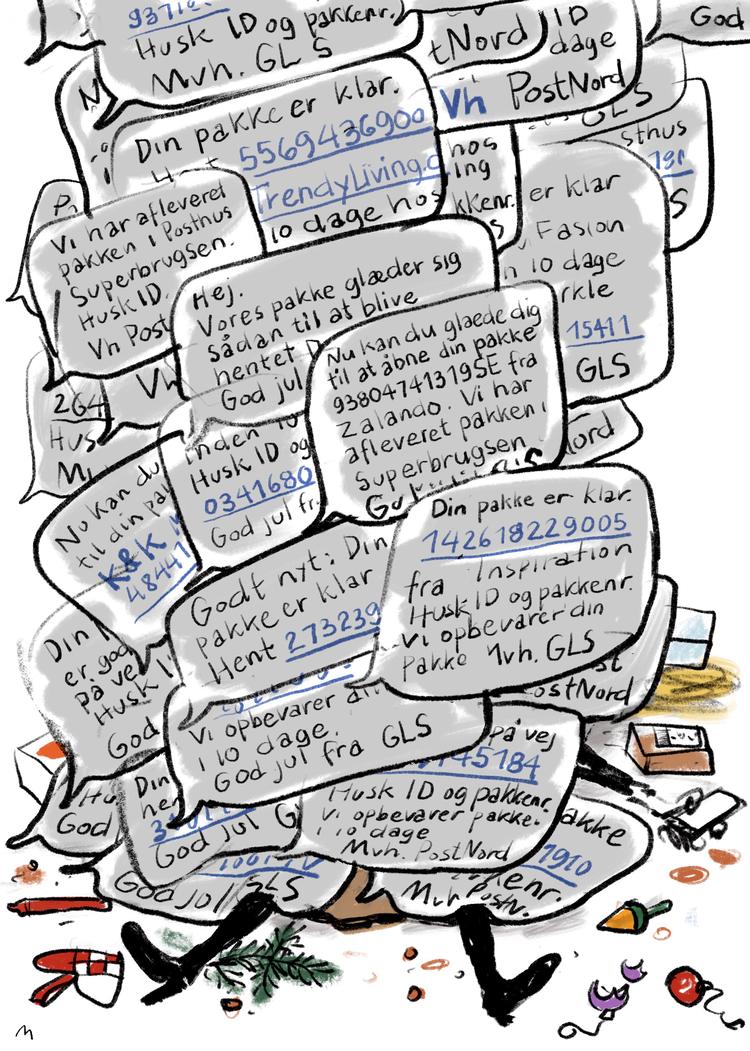 Husk ID og pakkenr.
Mvh. GLS
tNord
ID
dage
God
Vh PostNord
GLS
Din pakke er klar.
5569436900
TrendyLiving.
10 dage hos
hos
ing
kkenr.
S
sthus
S
er klar
Fasion
10 dage
rkle
15411
GLS
Vi har afleveret
pakken i Posthus
Superbrugsen.
Husk ID.
Vh Post
Hej.
Vores pakke glæder sig
sådan til at blive
hentet
God jul
Nu kan du glæde dig
til at åbne din pakke
93804741319SE fra
Zalando. Vi har
afleveret pakken i
Superbrugsen
264
Hus
Vh
inden 10
Husk ID og
0341680
God jul fr
ord
Nu kan du
til din pak
K&K
48441
Godt nyt: Din
pakke er klar
Hent 273239
Din pakke er klar.
142618229005
fra Inspiration
Husk ID og pakkenr.
Vi opbevarer din
pakke Mvh. GLS
st
ostNord
Din
er god
på ve
Husk
God
Vi opbevarer di
i 10 dage.
God jul fra GLS
på vej
45184
Husk ID og pakkenr.
Vi opbevarer pakke.
i 10 dage
Mvh. PostNord
Hu
God
Din
her
God jul G
akke
1910
kenr.
Mvh PostN.
God jul GLS